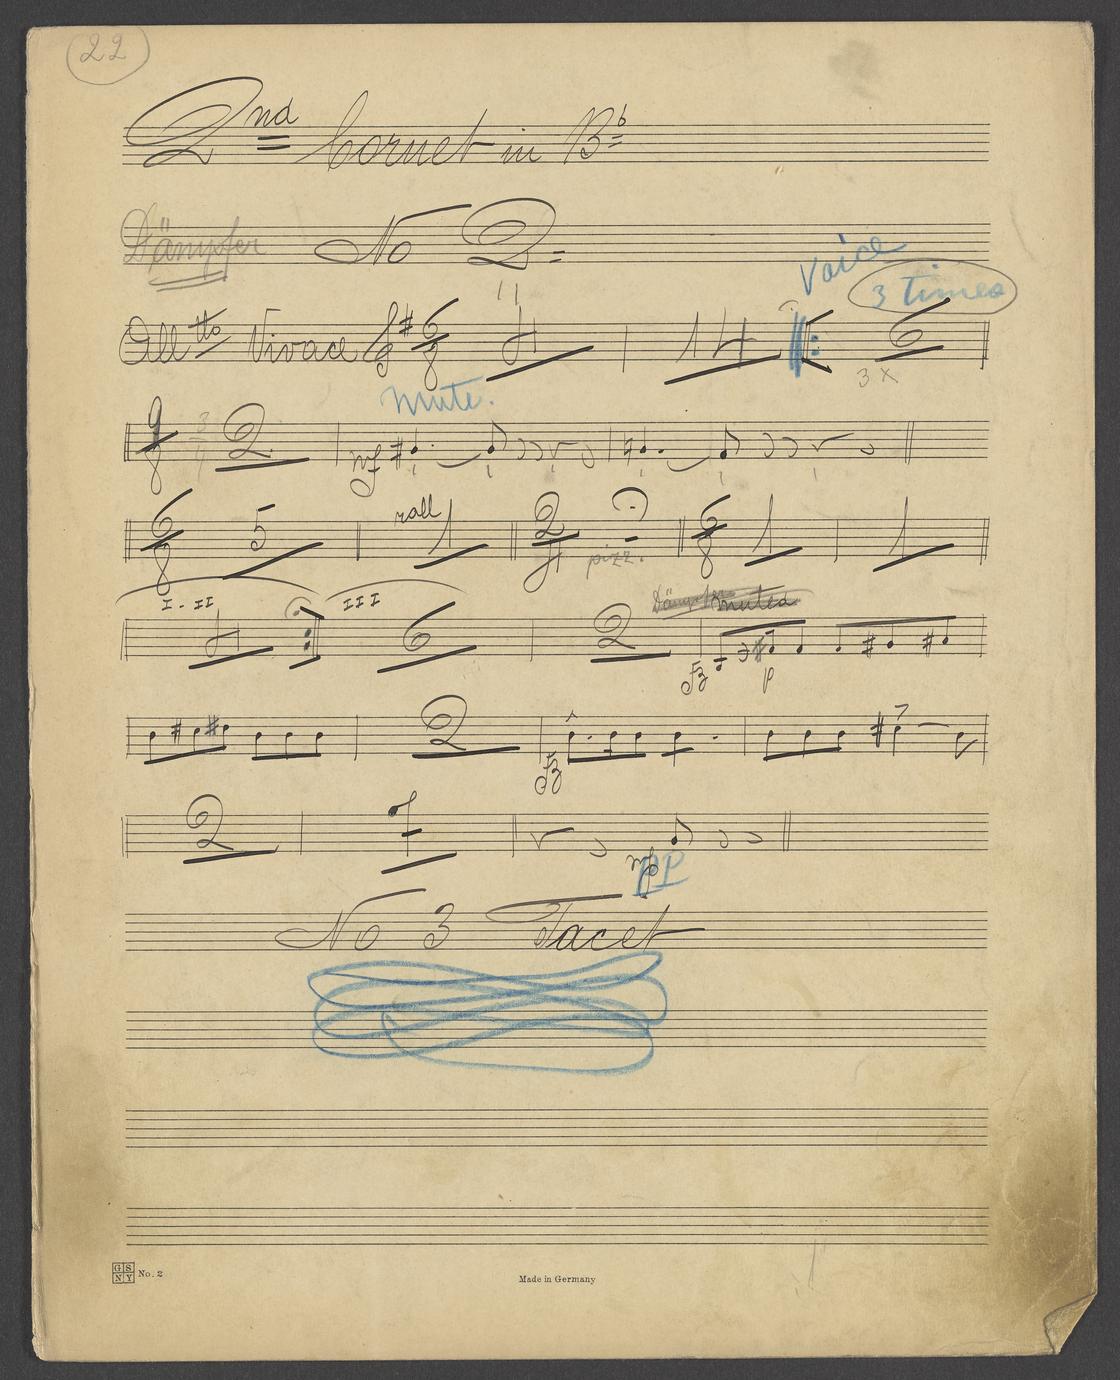 22
2nd Cornet in B♭
Dämpfer No 2
11
Voice
3 times
All tto Vivace 6 8 4 14 6
3 x
mute.
9 8 2 mf
6 8 5 rall 1 2 4 pizz. 6 8 1 1
I - II III
4 6 2 Dämpfer muted
fz p
2 fz
2 7 mf
PP
No 3 Tacet
GS NY No. 2
Made in Germany